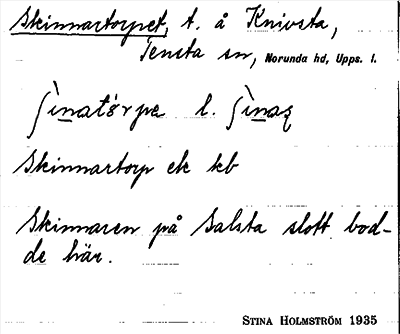 Skinnartorpet, t. å Knivsta,
Tensta sn, Norunda hd, Upps. l.
ʃìnatɵ̀rpe l. ʃìnaʀ
Skinnartorp ek kb
Skinnaren på Salsta slott bod-
de här.
STINA HOLMSTRÖM 1935